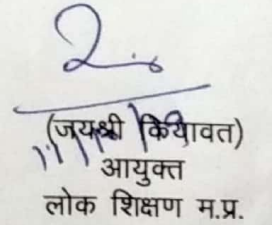 (जयश्री कियावत)
आयुक्त
लोक शिक्षण म.प्र.